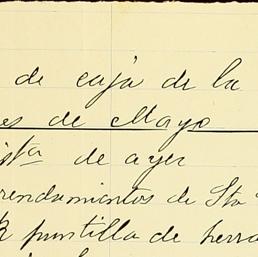 de caja de la
es de Mayo
ista de ayer
rendamientos de Sta
puntilla de herra